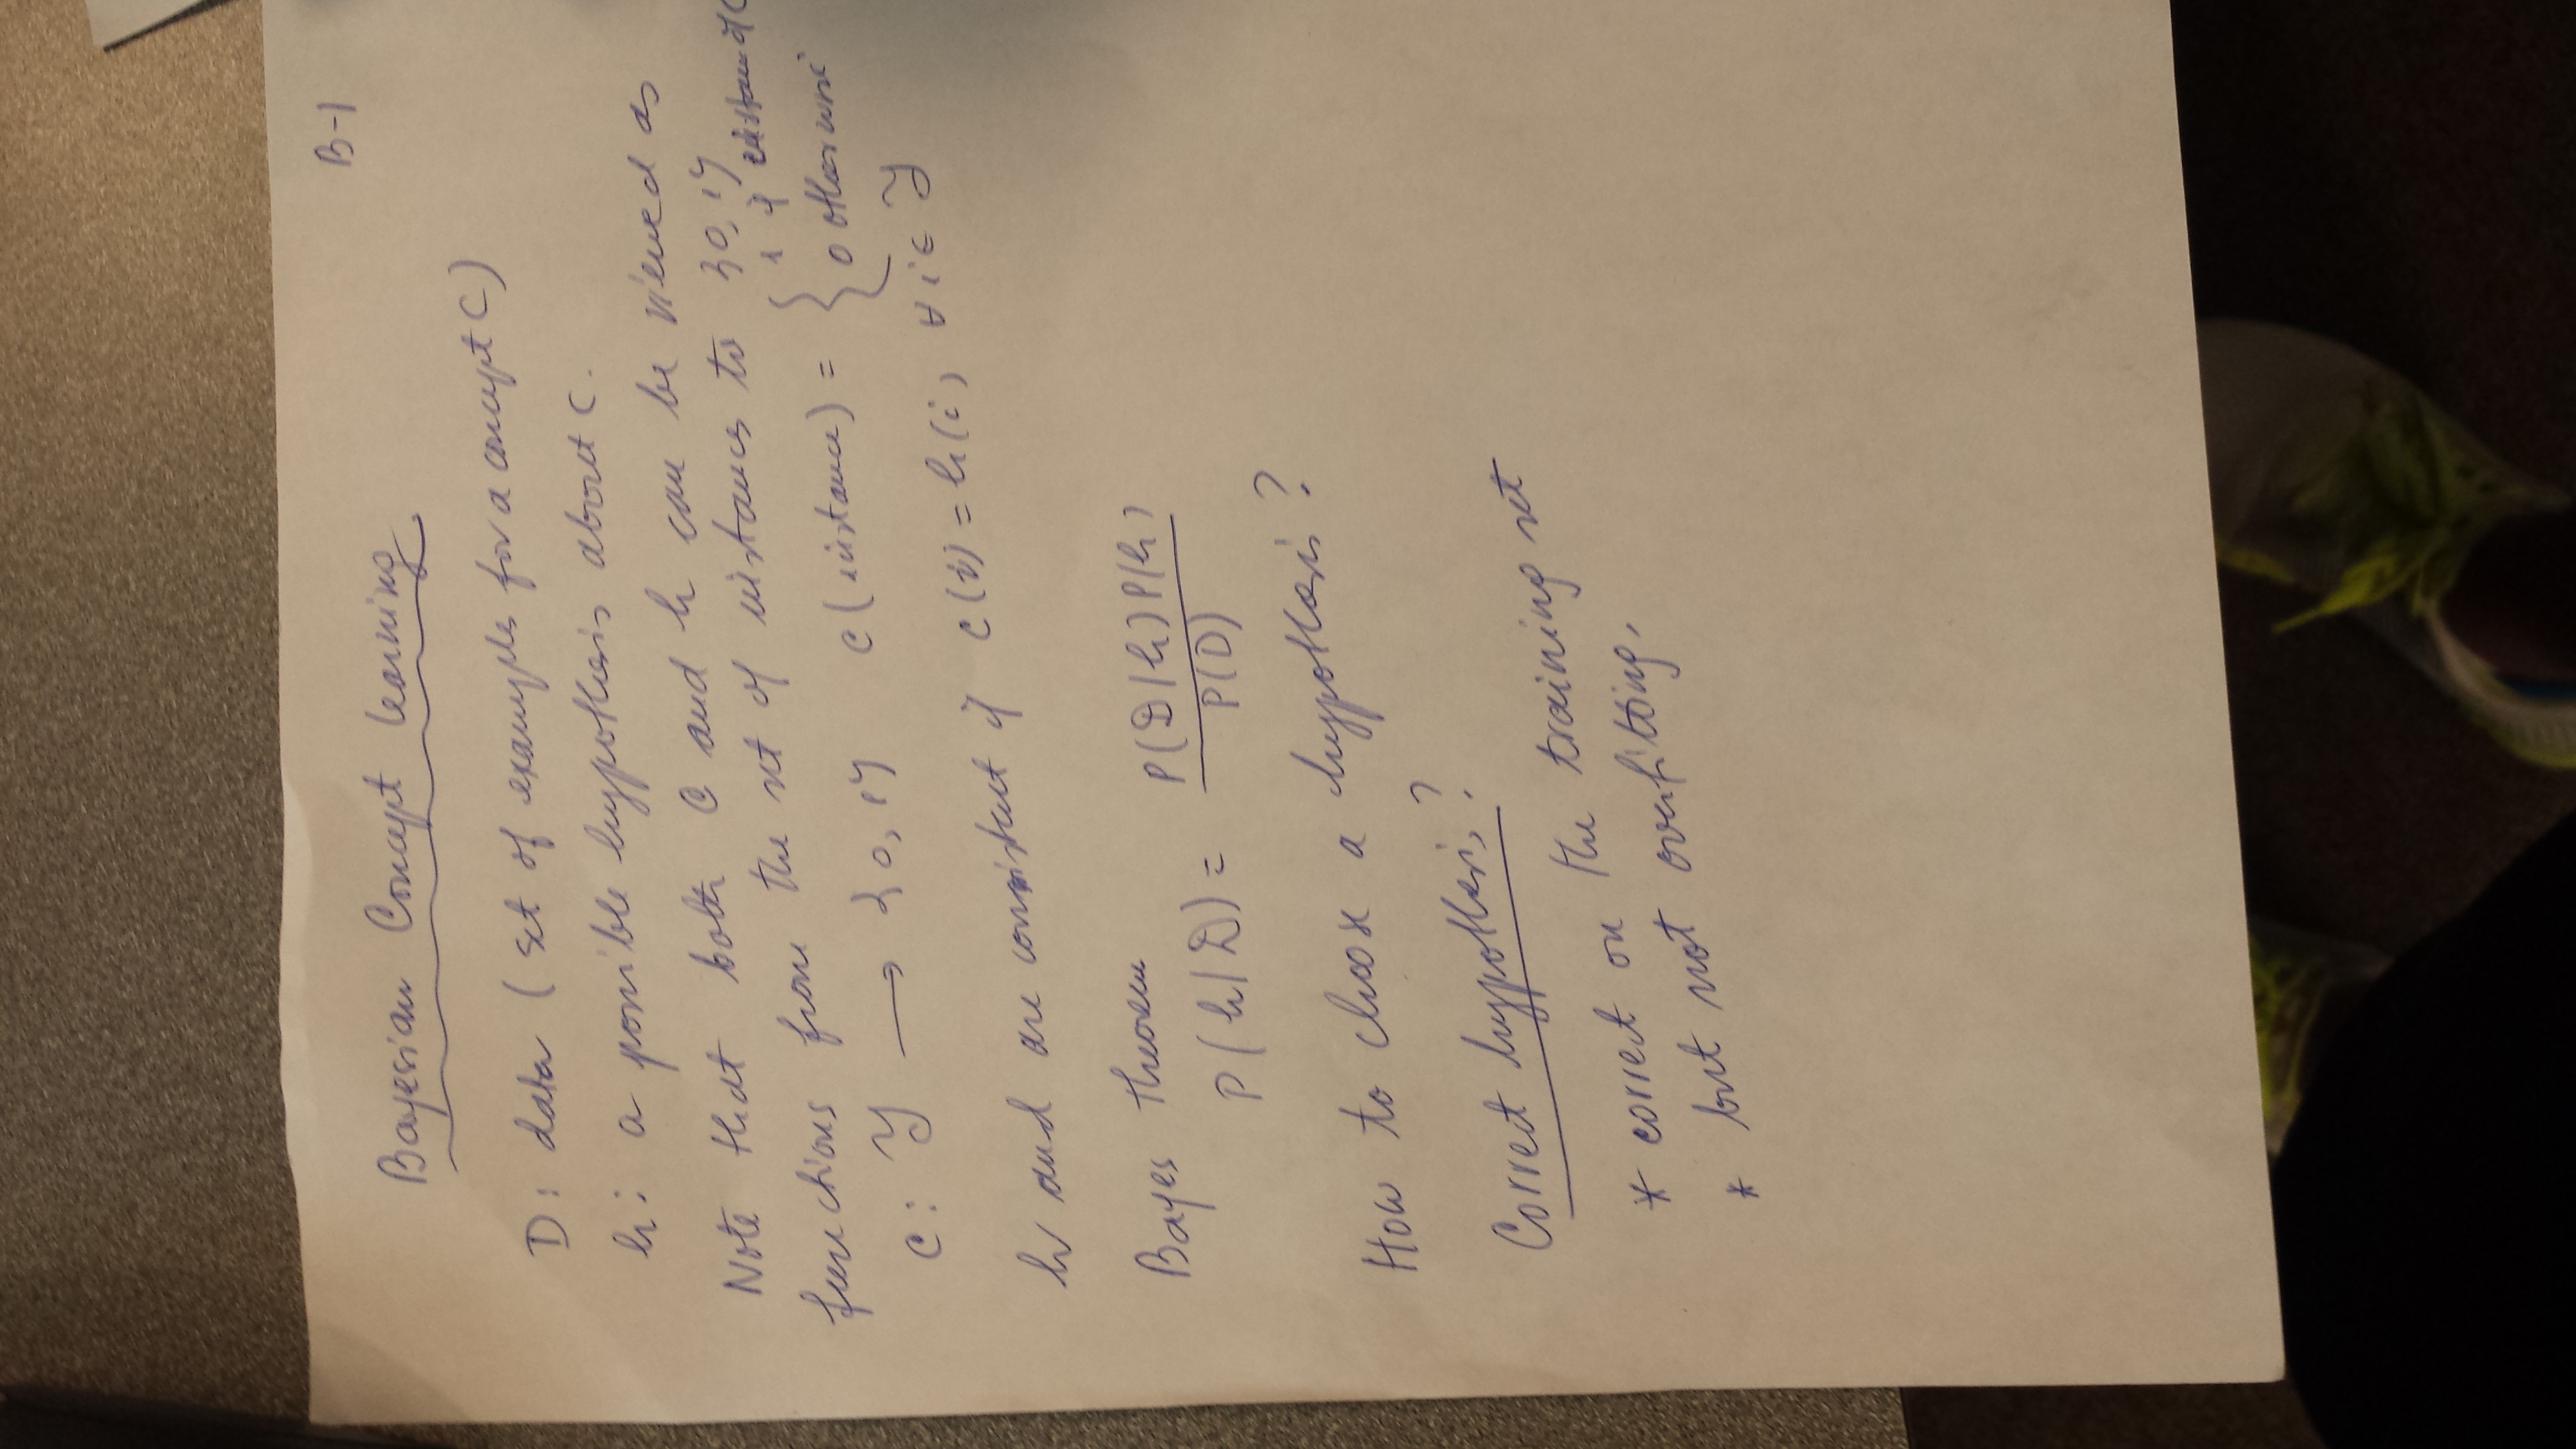 B-1
Bayesian Concept learning
D: data (set of examples for a concept C)
h: a possible hypothesis about C.
Note that both C and h can be viewed as
functions from the set of instances to {0,1}
C: Y → {0,1} C(instance) = { 1 if instance of C
0 otherwise
h and are consistent if C(i) = h(i), ∀ i ∈ Y
Bayes theorem
P(h|D) = P(D|h)P(h) / P(D)
How to choose a hypothesis?
Correct hypothesis?
* correct on the training set
* but not overfitting,